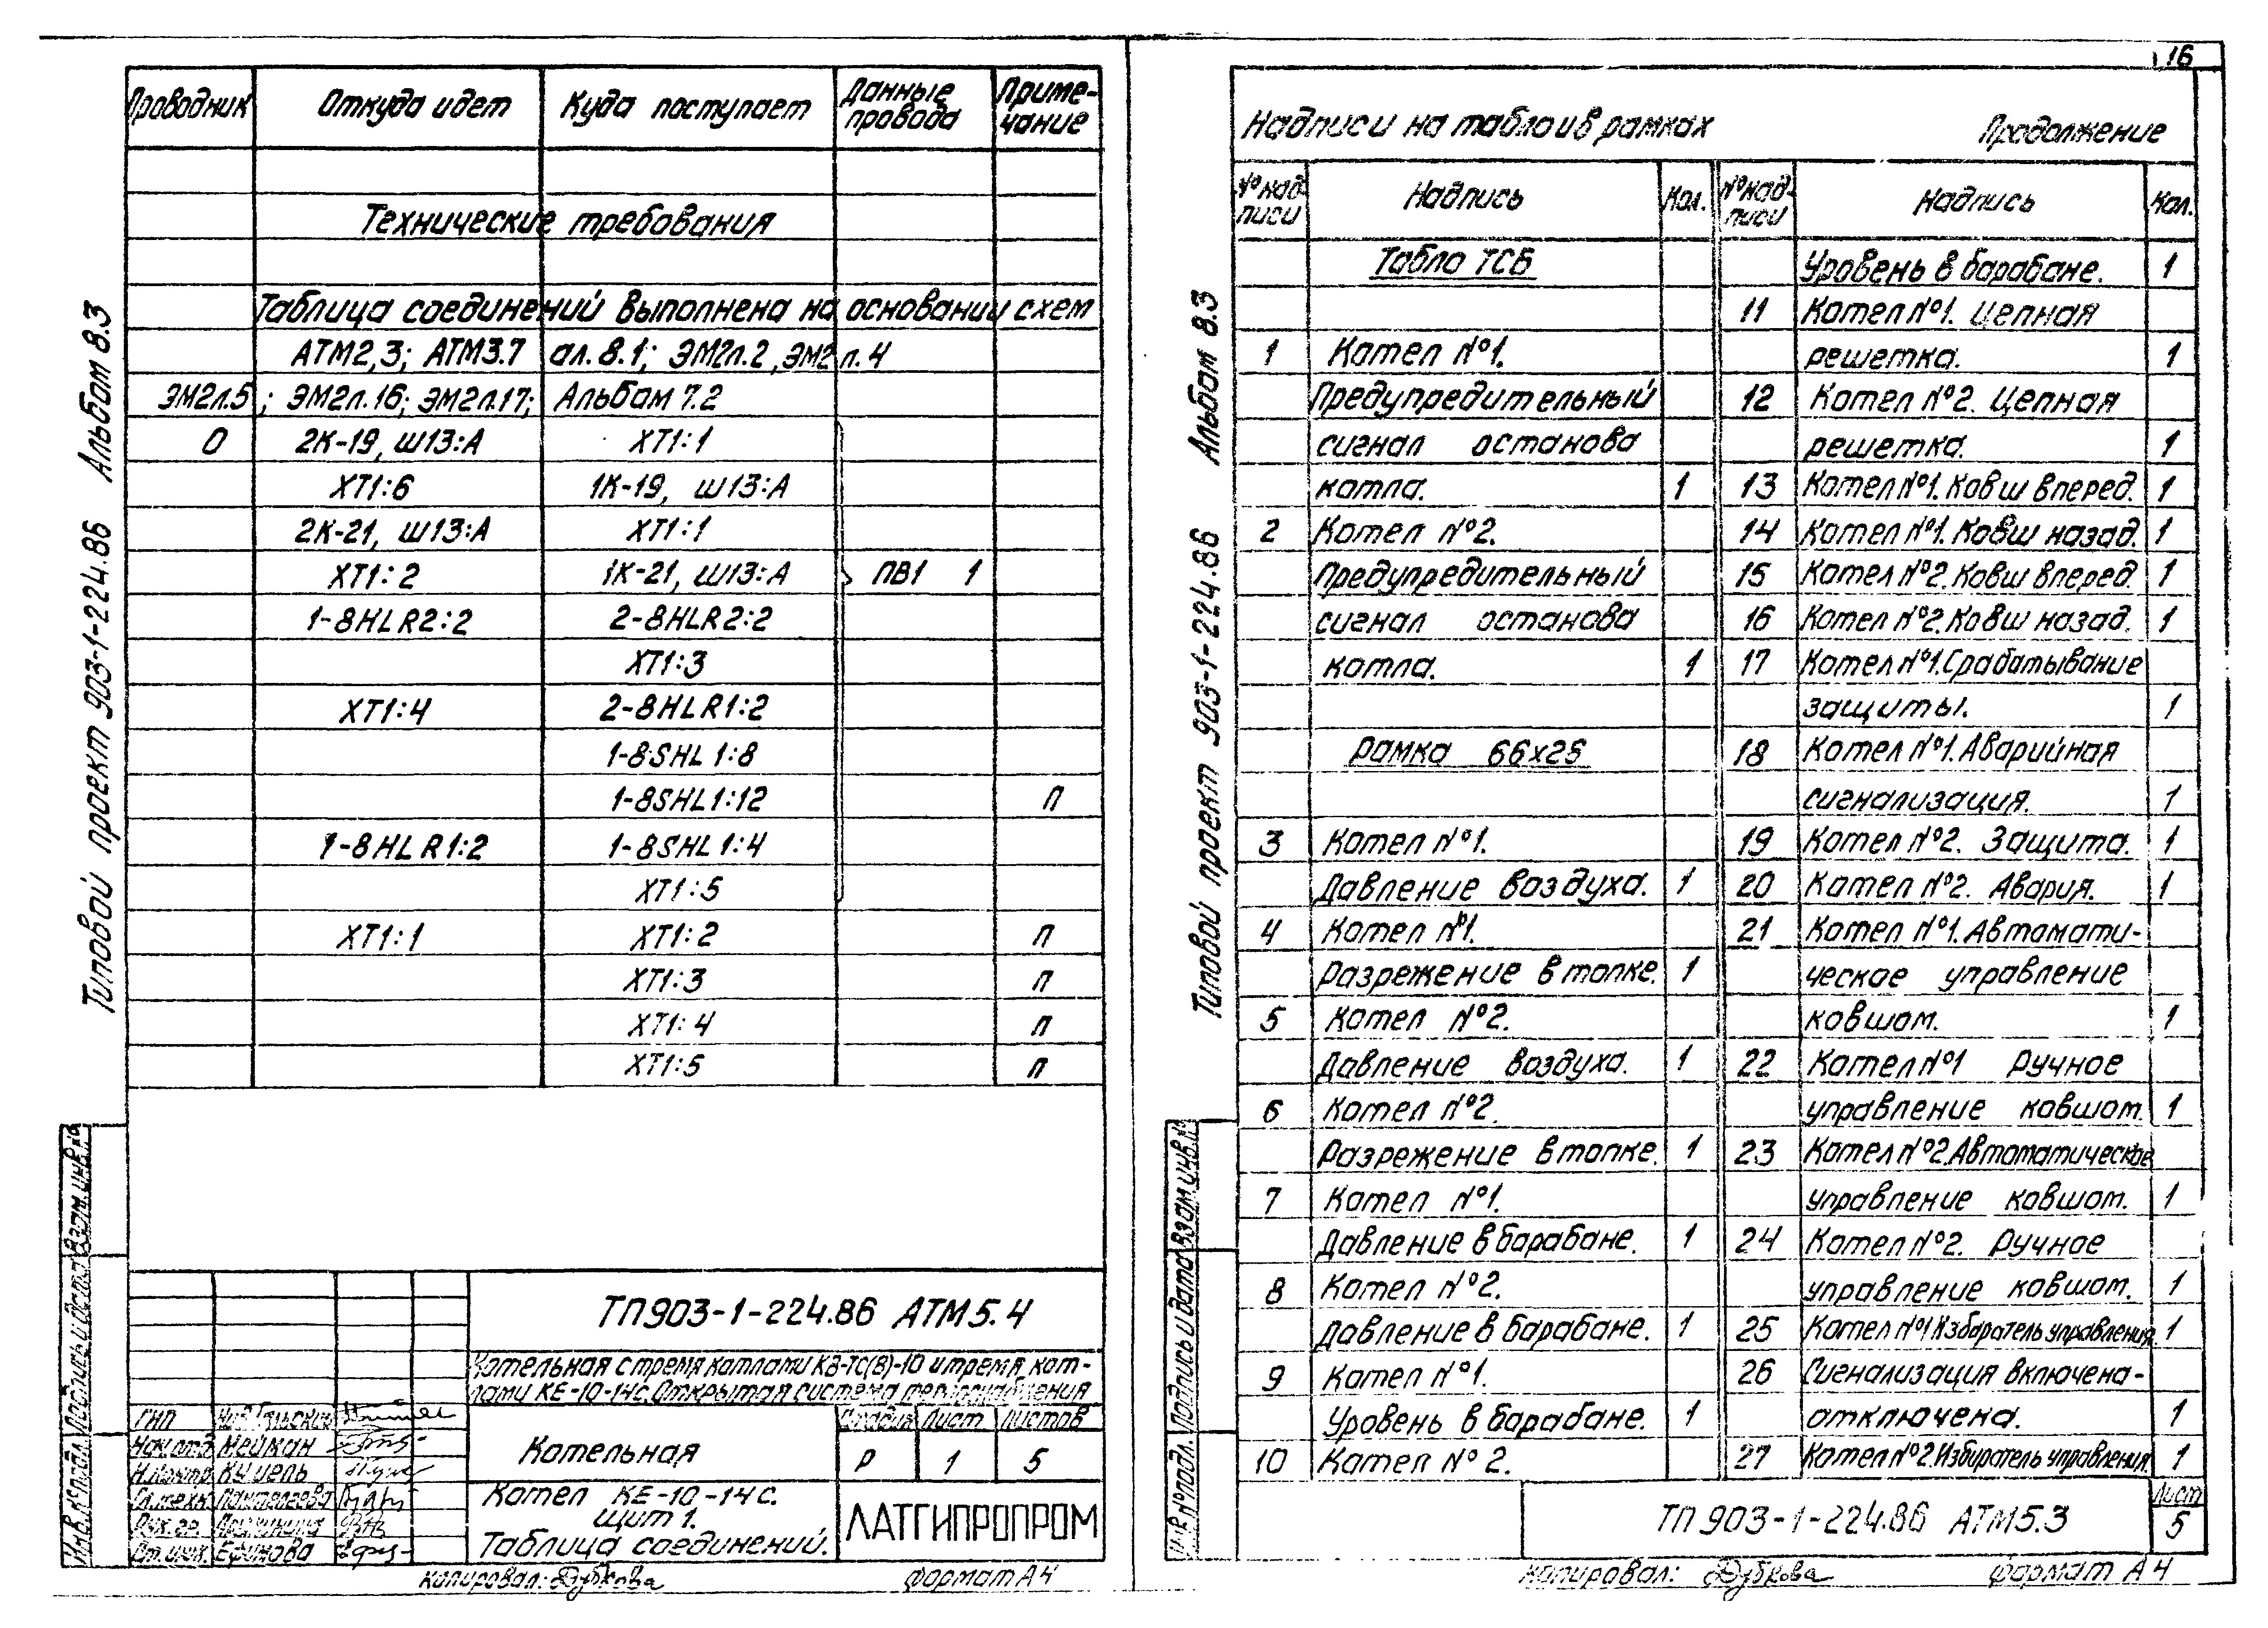 16
Проводник Откуда идет Куда поступает Данные провода Приме-чание
Технические требования
Таблица соединений выполнена на основании схем
АТМ2,3; АТМ3.7 ал.8.1; ЭМ2л.2, ЭМ2 л.4
ЭМ2л.5; ЭМ2л.16; ЭМ2л.17; Альбом 7.2
0 2К-19, Ш13:А ХТ1:1
ХТ1:6 1К-19, Ш13:А
2К-21, Ш13:А ХТ1:1
ХТ1:2 1К-21, Ш13:А ПВ1 1
1-8HLR2:2 2-8HLR2:2
ХТ1:3
ХТ1:4 2-8HLR1:2
1-8SHL1:8
1-8SHL1:12 П
1-8HLR1:2 1-8SHL1:4
ХТ1:5
ХТ1:1 ХТ1:2 П
ХТ1:3 П
ХТ1:4 П
ХТ1:5 П
Типовой проект 903-1-224.86 Альбом 8.3
Инв.№ подл. Подпись и дата Взам.инв.№
ТП903-1-224.86 АТМ5.4
Котельная с тремя котлами КВ-ТС(В)-10 и тремя кот-
лами КЕ-10-14с. Открытая система теплоснабжения
ГИП
Нач.отд. Мейман
Н.контр.
Гл.техн. Пантелеева
Рук.гр.
Ст.инж. Ефимова
Котельная
Стадия Лист Листов
Р 1 5
Котел КЕ-10-14с.
Щит 1.
Таблица соединений.
ЛАТГИПРОПРОМ
Копировал: Дубкова Формат А4
Надписи на табло и в рамках Продолжение
№ над-писи Надпись Кол. № над-писи Надпись Кол.
Табло ТСБ
1 Котел №1.
Предупредительный
сигнал останова
котла. 1
2 Котел №2.
Предупредительный
сигнал останова
котла. 1
Рамка 66х26
3 Котел №1.
Давление воздуха. 1
4 Котел №1.
Разрежение в топке. 1
5 Котел №2.
Давление воздуха. 1
6 Котел №2.
Разрежение в топке. 1
7 Котел №1.
Давление в барабане. 1
8 Котел №2.
Давление в барабане. 1
9 Котел №1.
Уровень в барабане. 1
10 Котел №2.
Уровень в барабане. 1
11 Котел №1. Цепная
решетка. 1
12 Котел №2. Цепная
решетка. 1
13 Котел №1. Ковш вперед. 1
14 Котел №1. Ковш назад. 1
15 Котел №2. Ковш вперед. 1
16 Котел №2. Ковш назад. 1
17 Котел №1. Срабатывание
защиты. 1
18 Котел №1. Аварийная
сигнализация. 1
19 Котел №2. Защита. 1
20 Котел №2. Авария. 1
21 Котел №1. Автомати-
ческое управление
ковшом. 1
22 Котел №1 Ручное
управление ковшом. 1
23 Котел №2. Автоматическое
управление ковшом. 1
24 Котел №2. Ручное
управление ковшом. 1
25 Котел №1 Избиратель управления. 1
26 Сигнализация включена-
отключена. 1
27 Котел №2. Избиратель управления 1
Типовой проект 903-1-224.86 Альбом 8.3
Инв.№ подл. Подпись и дата Взам инв.№
ТП903-1-224.86 АТМ5.3
Лист
5
Копировал: Дубкова Формат А4